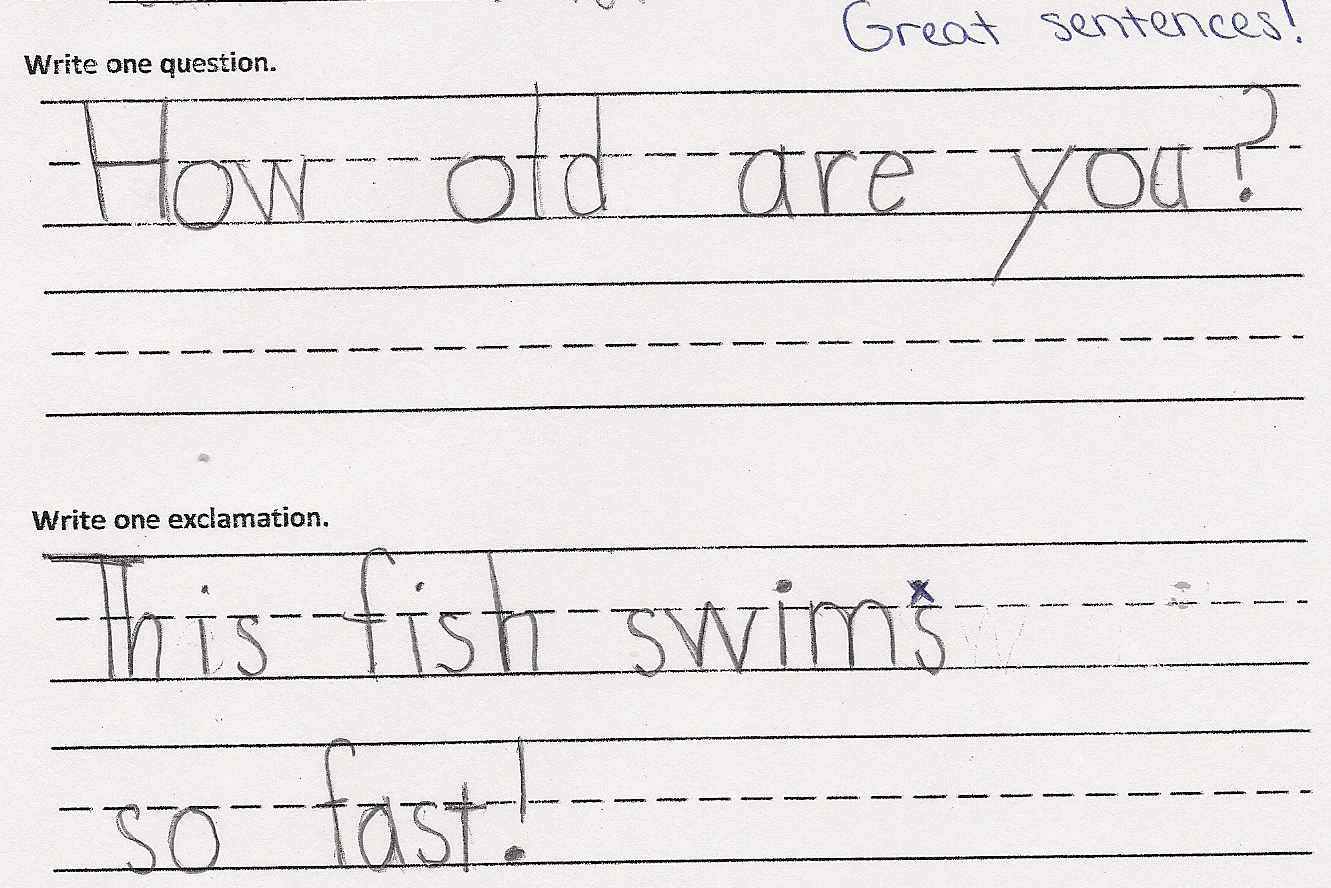 Great sentences!
Write one question.
How old are you?
Write one exclamation.
This fish swims
so fast!